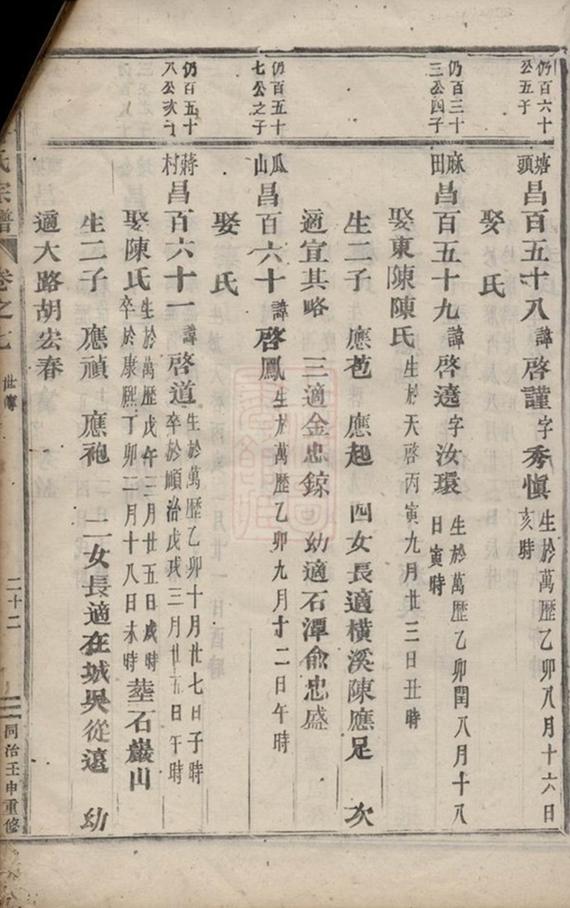 仍百六十
公五子
塘頭
昌百五十八諱啓謹字秀慎生於萬歷乙卯八月十六日亥時
娶 氏
仍百三十
三公四子
麻田
昌百五十九諱啓遠字汝環生於萬歷乙卯閏八月十八日寅時
娶東陳陳氏生於天啓丙寅九月廿三日丑時
生二子 應苞 應起 四女長適橫溪陳應足 次
適宜其略 三適金忠錸 幼適石潭俞忠盛
仍百五十
七公之子
瓜山
昌百六十諱啓鳳生於萬歷乙卯九月十二日午時
娶 氏
仍百五十
八公次子
蔣村
昌百六十一諱啓道生於萬歷乙卯十月廿七日子時卒於順治戊戌三月廿五日午時
娶陳氏生於萬歷戊午三月廿五日戌時卒於康熙丁卯二月十八日未時 塟石巖山
生二子 應禎 應袍 二女長適在城吳從遠 幼
適大路胡宏春
氏宗譜 卷之七 世傳 二十二 同治壬申重修